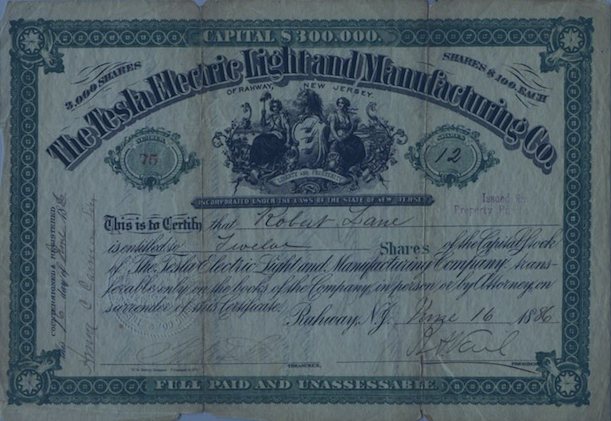 CAPITAL $300,000.
3,000 SHARES
SHARES $100 EACH
The Tesla Electric Light and Manufacturing Co.
OF RAHWAY, NEW JERSEY.
75
12
LIBERTY AND PROSPERITY
INCORPORATED UNDER THE LAWS OF THE STATE OF NEW JERSEY
Issued
Property
This is to Certify that Robert Lane
is entitled to Twelve Shares of the Capital Stock
of The Tesla Electric Light and Manufacturing Company trans-
ferable only on the books of the Company, in person or by Attorney on
surrender of this Certificate.
Rahway, N.J. June 16 1886
TREASURER.
PRESIDENT
COUNTERSIGNED & REGISTERED
this 16 day of June 1886
FULL PAID AND UNASSESSABLE.